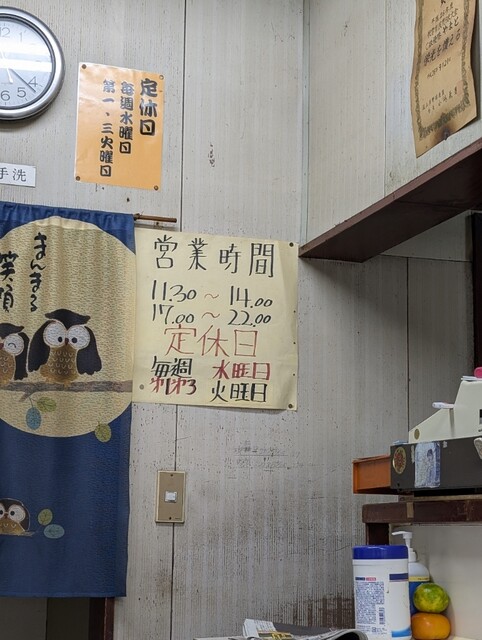 定休日
毎週水曜日
第一、三火曜日
手洗
まんまる
笑顔
営業時間
11.30～14.00
17.00～22.00
定休日
毎週 水曜日
第1第3 火曜日